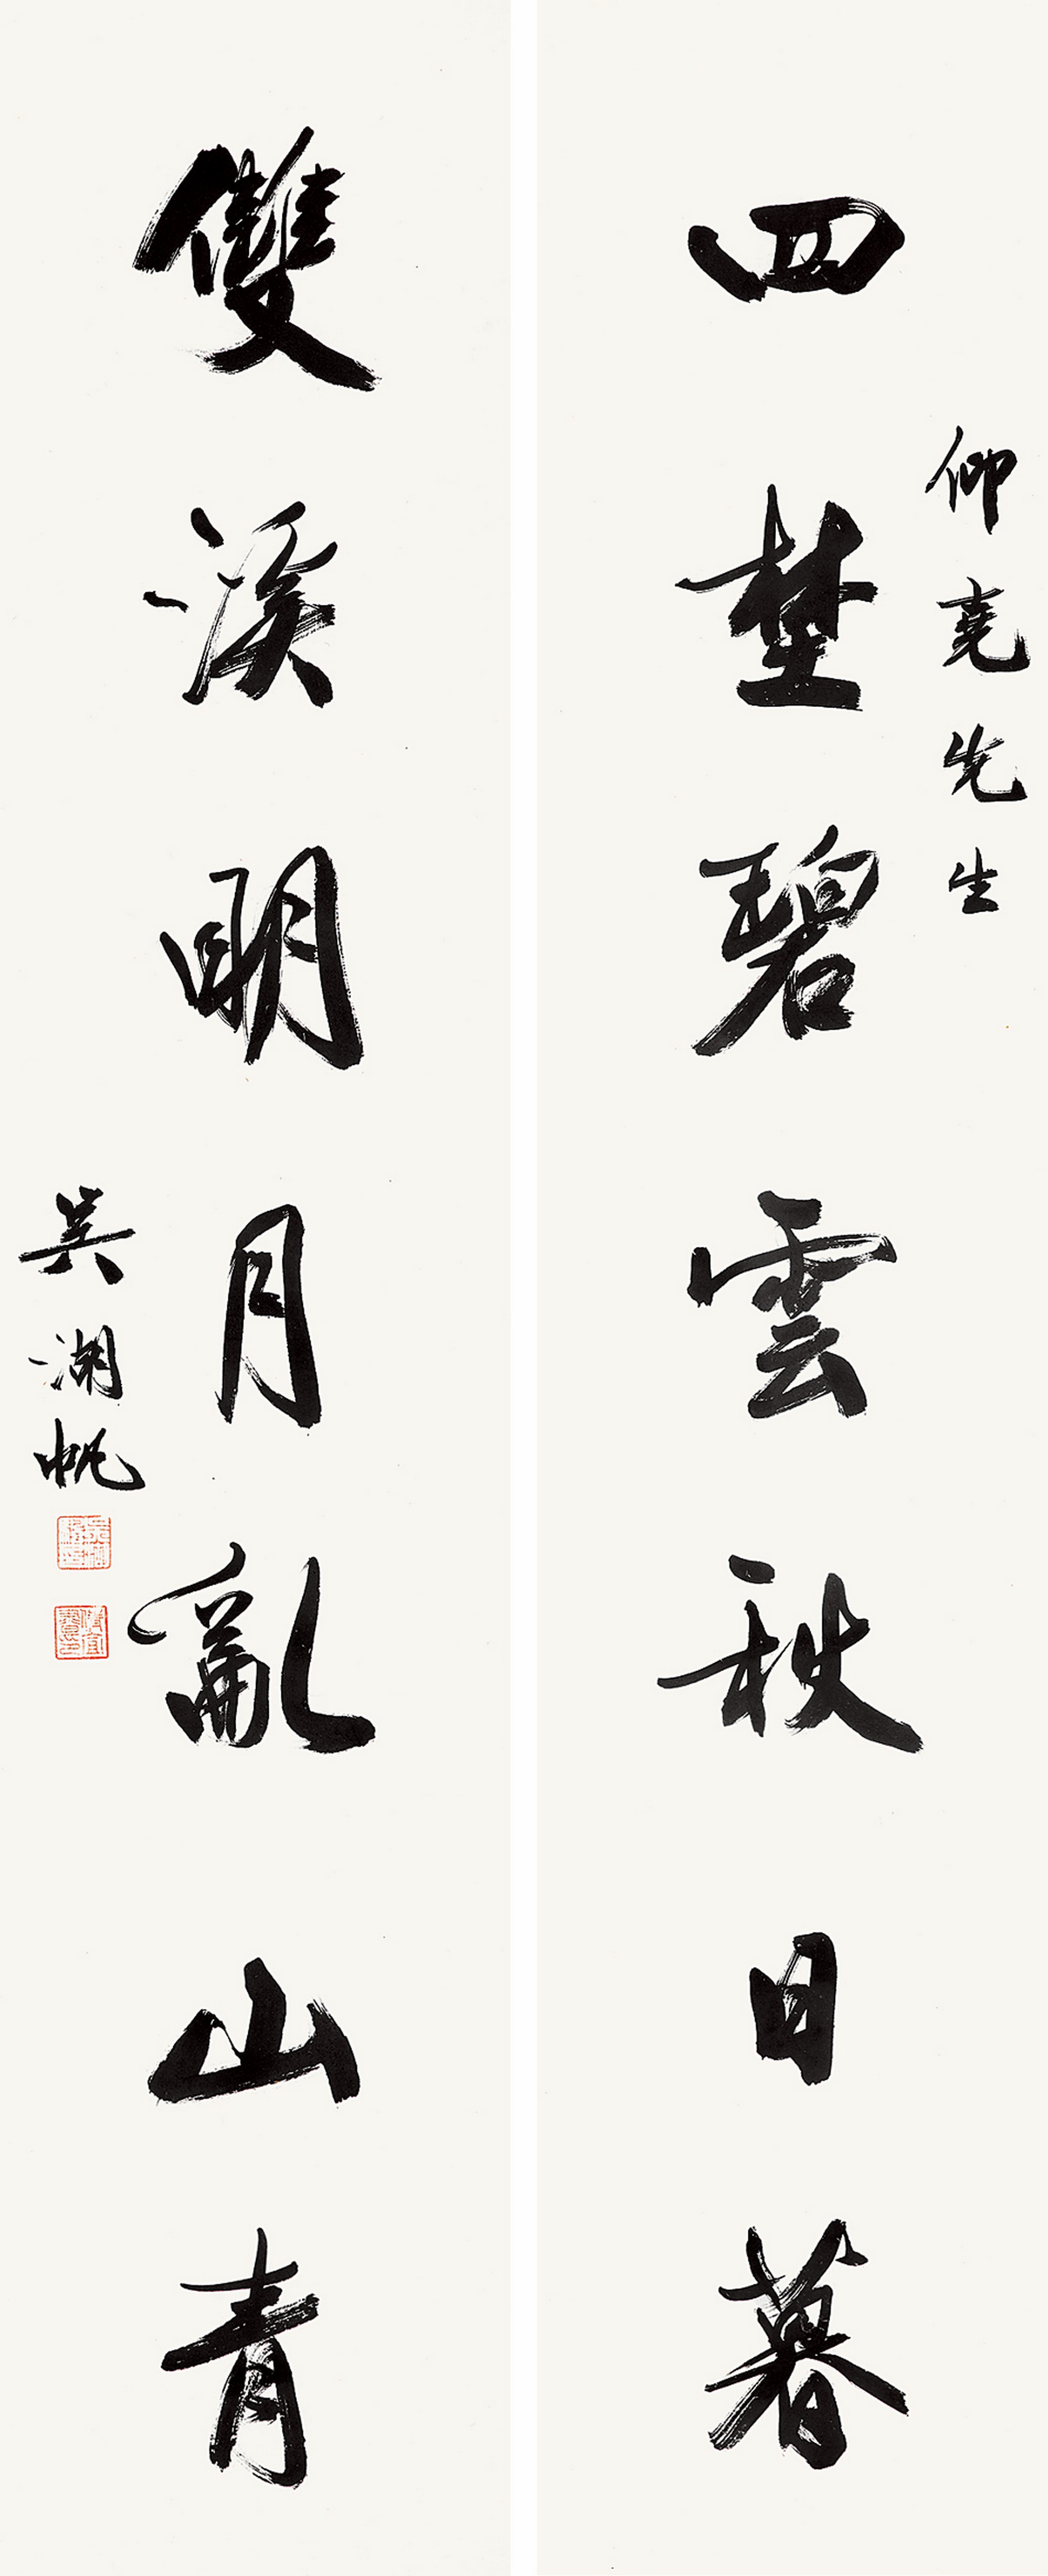 仰堯先生
四埜碧雲秋日暮
雙溪明月亂山青
吳湖帆